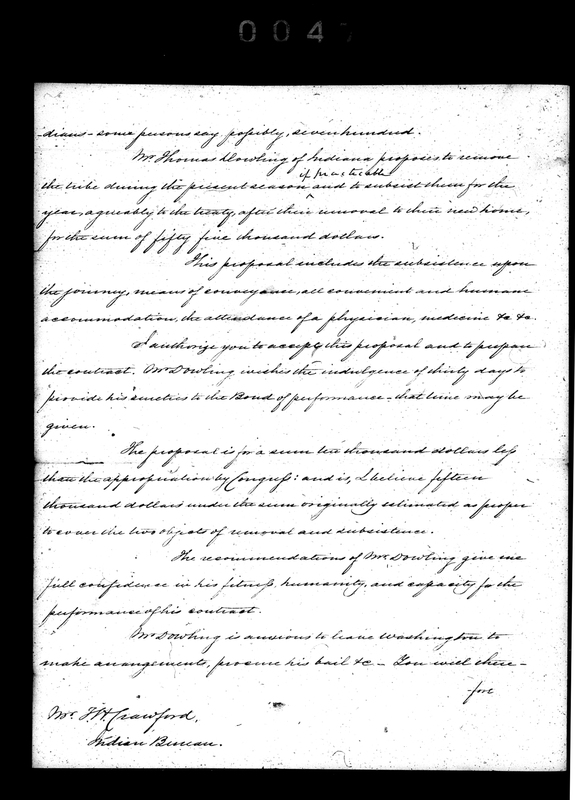 004
-dians - some persons say, possibly, seven hundred.
Mr Thomas Dowling of Indiana proposes to remove
if practicable
the tribe during the present season ^ and to subsist them for the
year, agreeably to the treaty, after their removal to their new home,
for the sum of fifty five thousand dollars.
This proposal includes the subsistence upon
the journey, means of conveyance, all convenient and humane
accommodation, the attendance of a physician, medicine &c &c.
I authorize you to accept this proposal and to prepare
the contract. Mr Dowling wishes the indulgence of thirty days to
provide his sureties to the Bond of performance - that time may be
given.
The proposal is for a sum ten thousand dollars less
than the appropriation by Congress: and is, I believe fifteen
thousand dollars under the sum originally estimated as proper
to cover the two objects of removal and subsistence.
The recommendations of Mr Dowling give me
full confidence in his fitness, humanity, and capacity for the
performance of his contract.
Mr Dowling is anxious to leave Washington to
make arrangements, procure his bail &c - You will there-
-fore
Mr. T. H. Crawford,
Indian Bureau.